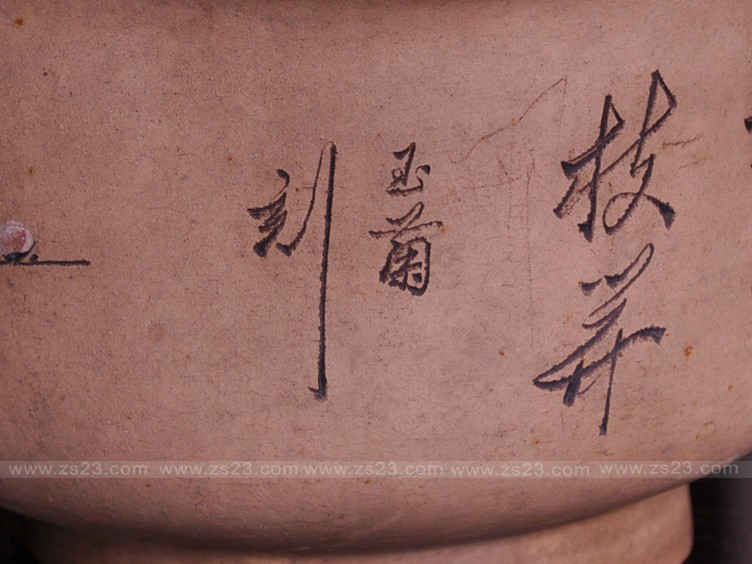 枝
玉蘭
刻
www.zs23.com www.zs23.com www.zs23.com www.zs23.com www.zs23.com